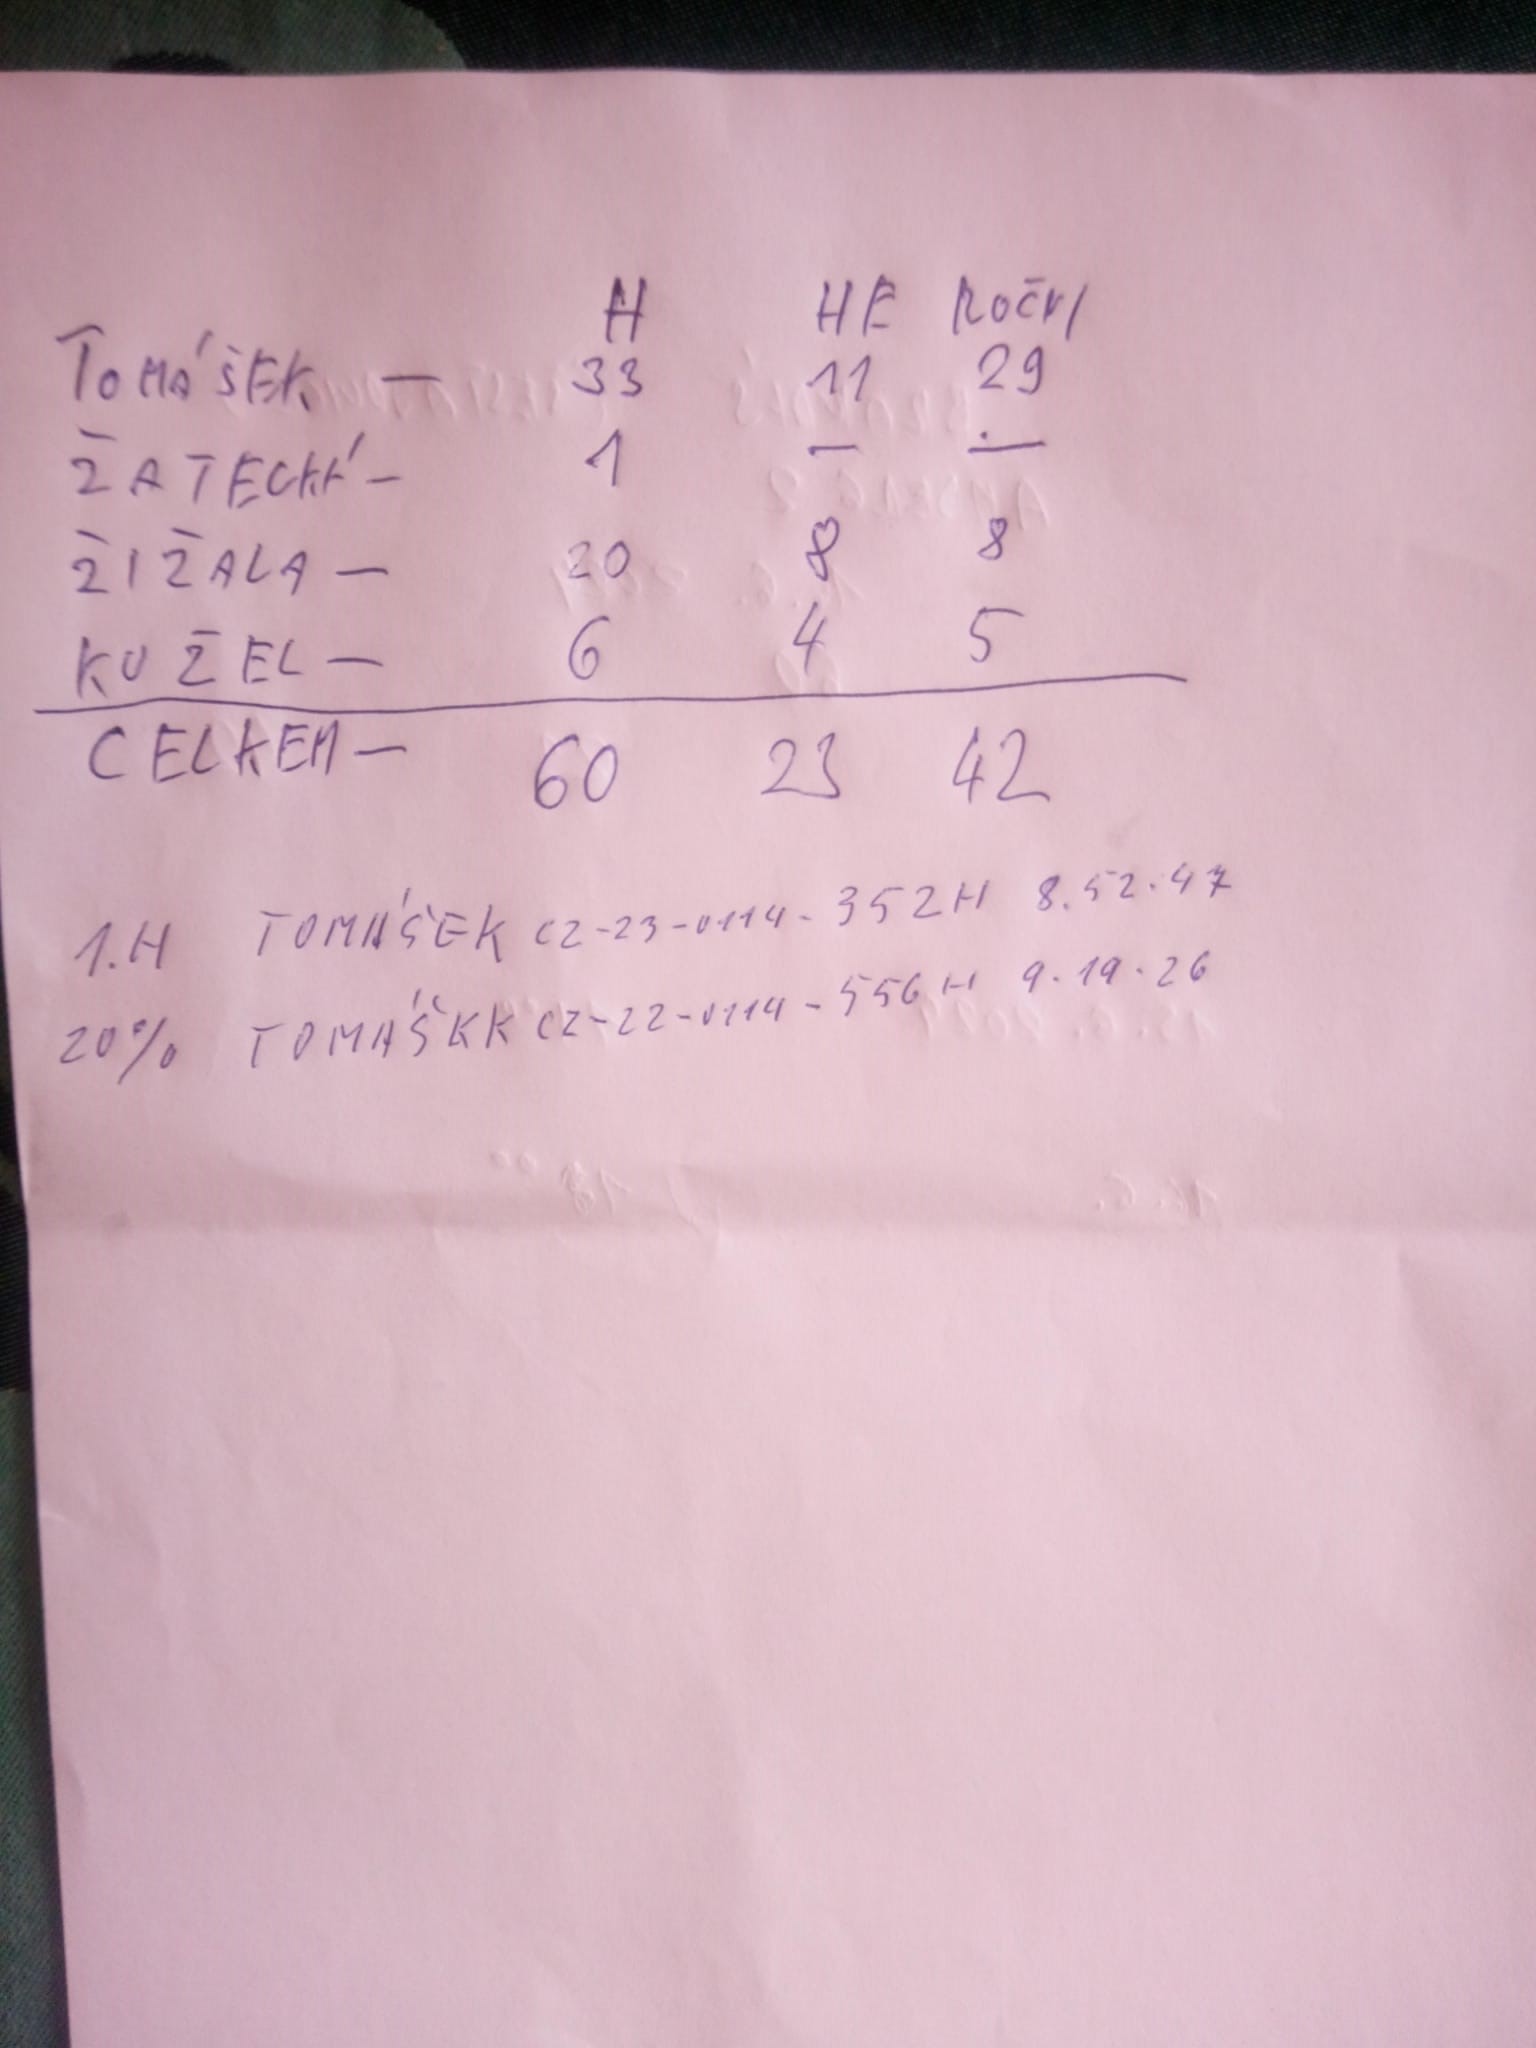 H HE ROČNÍ
TOMÁŠEK — 33 11 29
ŽATECKÝ — 1 — —
ŽIŽALA — 20 8 8
KUŽEL — 6 4 5
CELKEM — 60 23 42
1.H TOMÁŠEK CZ-23-0114-352H 8.52.47
20% TOMÁŠKK CZ-22-0114-556H 9.19.26